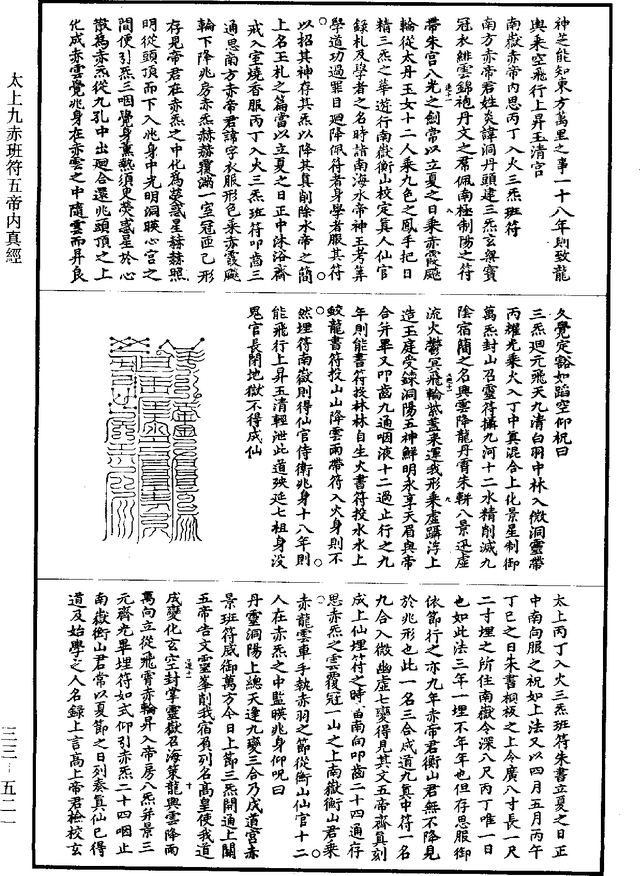 神芝能知東方萬里之事一十八年則致龍
輿乘空飛行上昇玉清宮
南嶽赤帝內思丙丁入火三炁班符
南方赤帝君姓炎諱洞丹頭建三炁玄樂寶
冠衣緋雲錦袍丹文之帬佩南極制陽之符
帶朱宮八光之劍常以立夏之日乘赤霞飈
輪從太丹玉女十二人乘九色之鳳手把日
精三炁之華遊行南嶽衡山校定真人仙官
錄札及學者之名時詣南海水帝神王考筭
學道功過罪目迴降佩符者身學者服其符
以招其神存其炁以降其真削除水帝之簡
上名玉札之篇當以立夏之日正中沐浴齋
戒入室燒香服丙丁入火三炁班符叩齒三
通思南方赤帝君諱字衣服形色乘赤霞飈
輪下降兆房赤炁赫赫覆滿一室冠匝己形
存見帝君在赤炁之中化為熒惑星赫赫照
明從頭頂而下入兆身中光明洞暎心宮之
間便引炁三咽覺身薰熱須臾熒惑星於心
散為赤炁從九孔中出迴合還兆頭頂之上
化成赤雲覺兆身在赤雲之中隨雲而昇良
久覺定豁如蹈空仰祝曰
三炁迴元飛天九清白羽中林入微洞靈帶
丙燿光乘火入丁中真混合上化景星制御
萬炁封山召靈符攝九河十二水精削滅九
陰宿簡之名興雲降龍丹霄朱軿八景迅虛
流火鬱冥飛輪紫蓋來運我形乘虛躡浮上
造玉庭受鍊洞陽五神鮮明永享天眉與帝
合并畢又叩齒九通咽液十二過止行之九
年則能書符投林林自生火書符投水水上
蛟龍書符投山山降雲雨帶符入火身則不
然埋符南嶽則得仙官侍衛兆身十八年則
能飛行上昇玉清輕泄此道殃延七祖身沒
鬼官長閉地獄不得成仙
太上丙丁入火三炁班符朱書立夏之日正
中南向服之祝如上法又以四月五月丙午
丁巳之日朱書桐板之上令廣八寸長一尺
二寸埋之所住南嶽令深八尺丙丁唯一日
也如此法三年一埋不年年也但存思服御
依節行之亦九年赤帝君衡山君無不降見
於兆形也此一名三合成道九真中符一名
九合入微幽虛七變得見其文五帝齋真刻
成上仙埋符之時面南向叩齒二十四通存
思赤炁之雲覆冠一山之上南嶽衡山君乘
赤龍雲車手執赤羽之節從衡山仙官十二
人在赤炁之中監暎兆身仰呪曰
丹靈洞陽上總天逢九變三合乃成道宮赤
景班符威御萬方今日上節三炁開通上關
五帝告文靈峯削我宿負列名高皇使我道
成變化玄空封掌靈嶽召海策龍興雲降雨
萬向立從飛霄赤輪昇入帝房八炁并景三
元齊光畢埋符如式仰引赤炁二十四咽止
南嶽衡山君常以夏節之日列奏真仙已得
道及始學之人名錄上言高上帝君檢校玄
太上九赤班符五帝內真經
三三—五二一